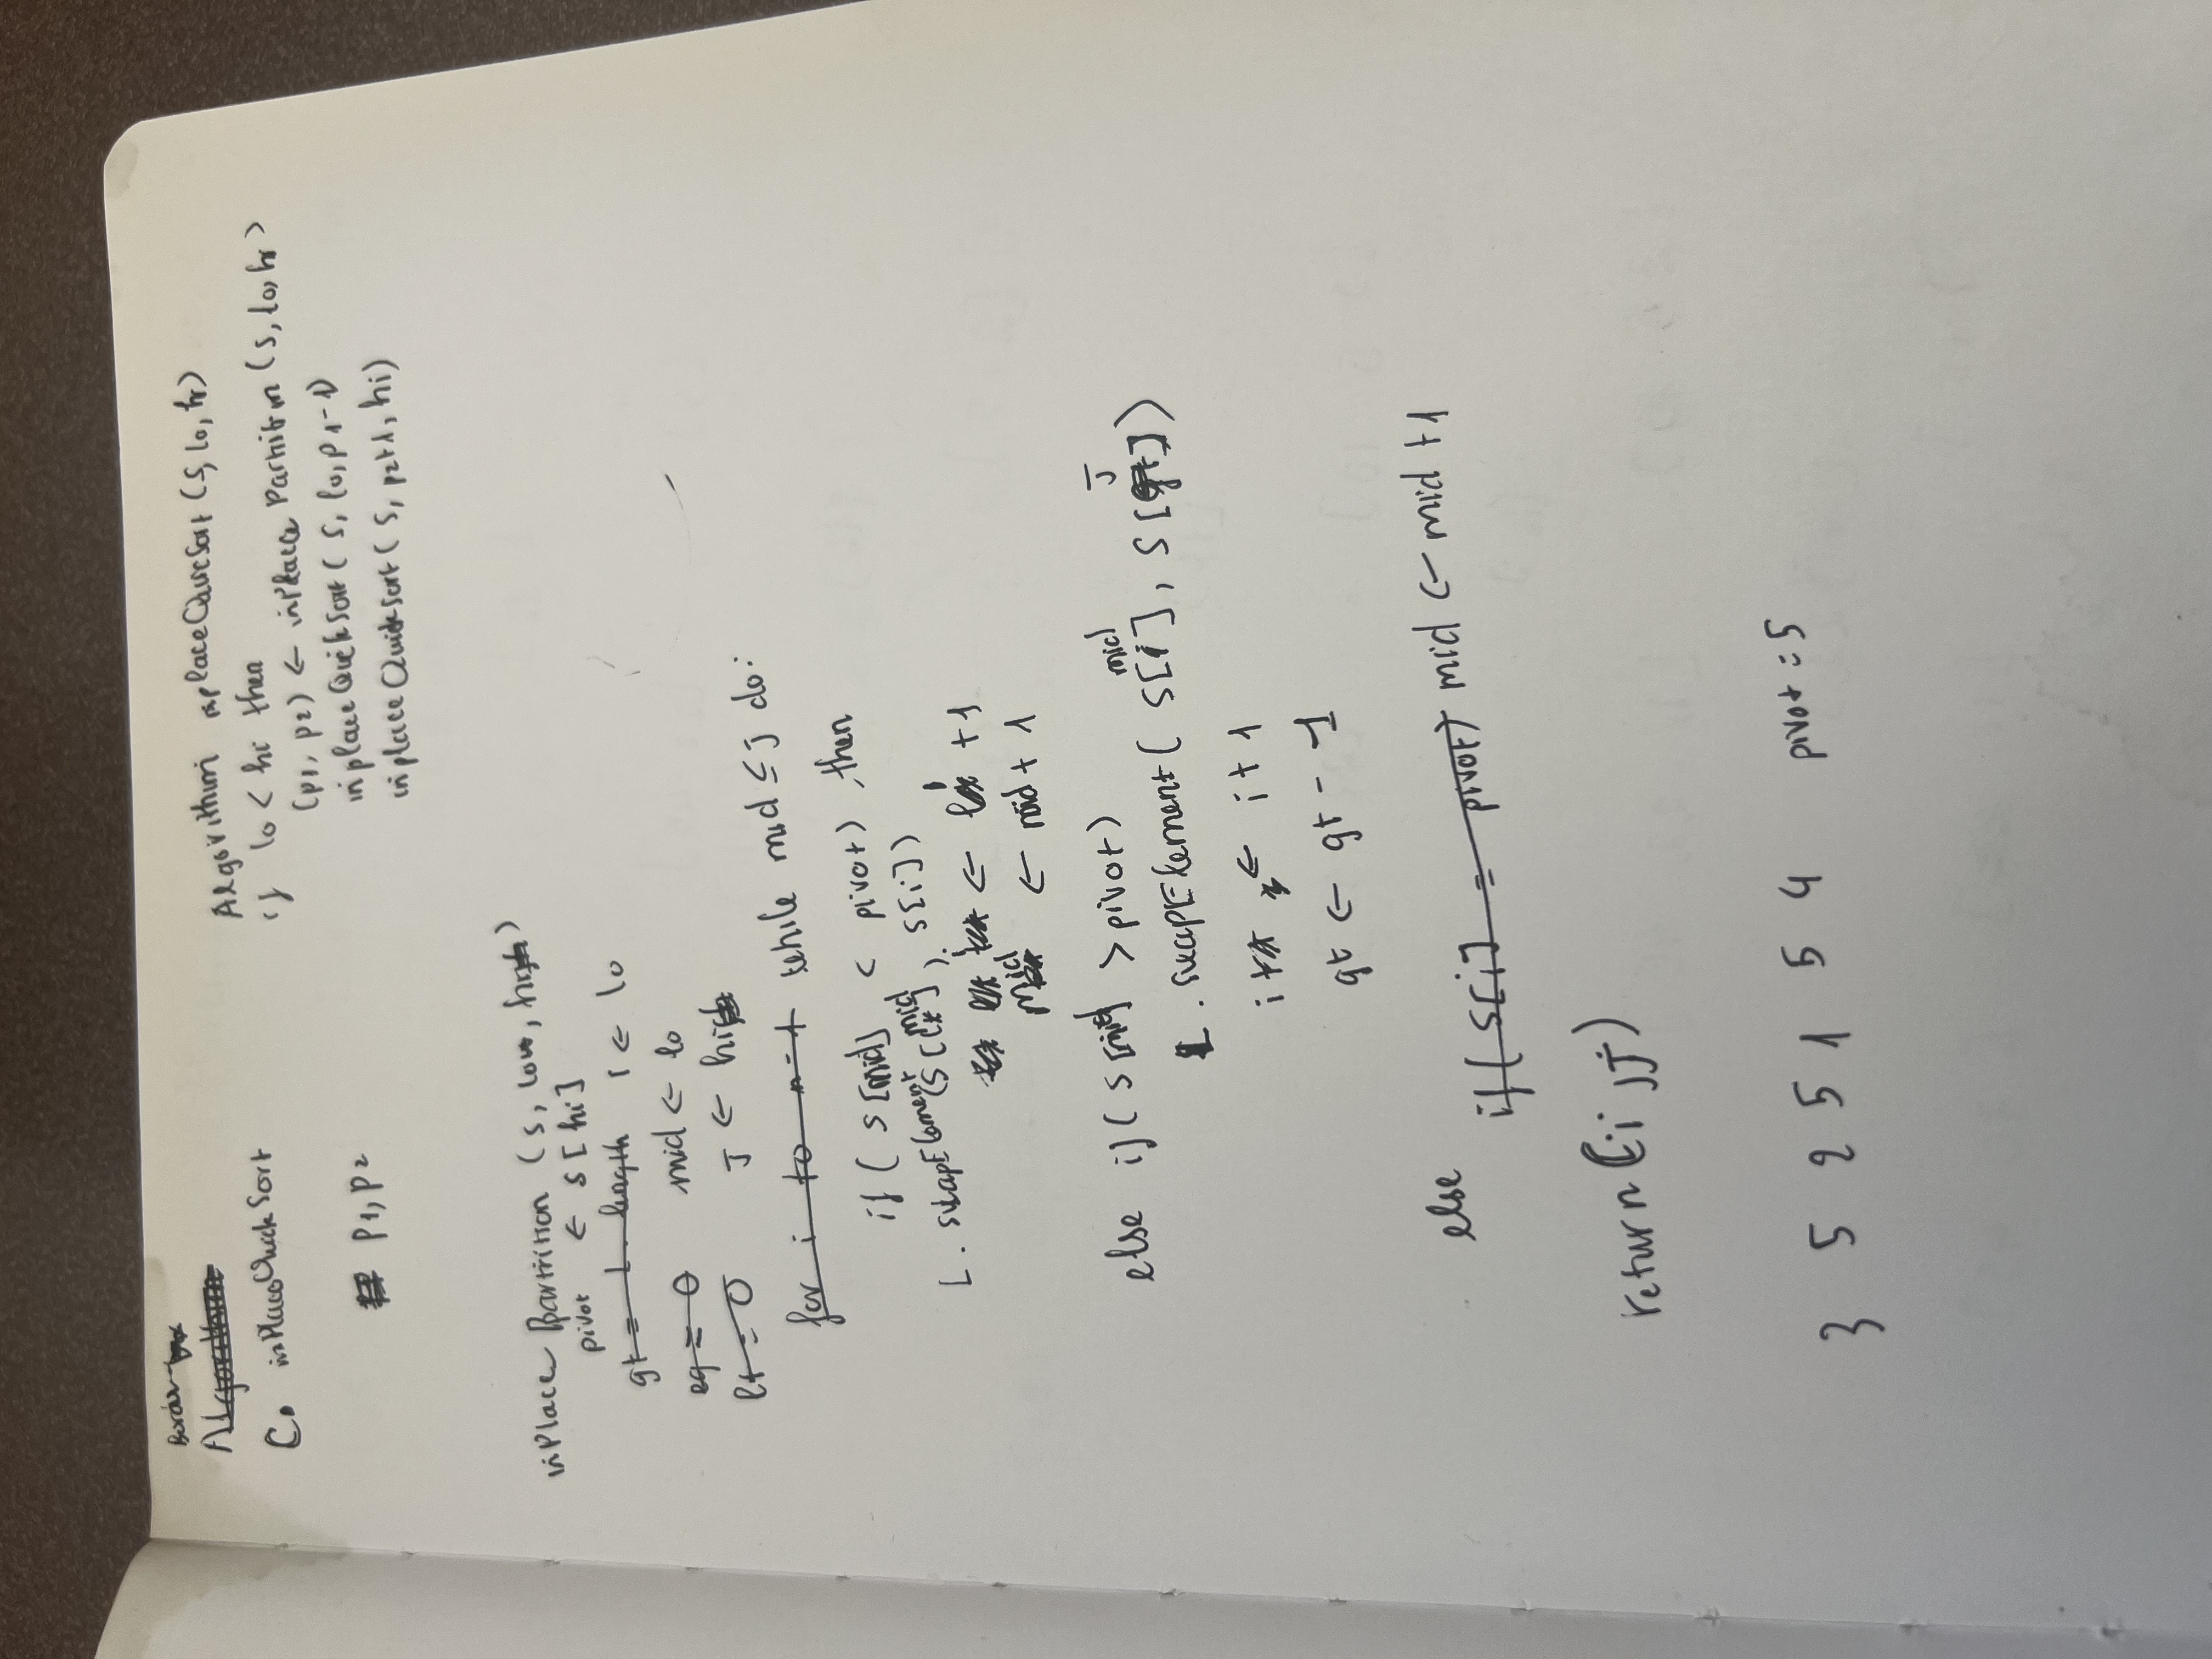 Algorithm
C. inPlaceQuickSort
p1, p2
Algorithm inplaceQuicSort (S, lo, hi)
if lo < hi then
(p1, p2) ← inPlace Partition (S, lo, hi)
inplaceQuickSort ( S, lo, p1-1)
inplaceQuickSort ( S, p2+1, hi)
inPlace Partrition (S, low, high)
pivot ← S[hi]
gt = L. length i ← lo
eq = 0 mid ← lo
lt = 0 J ← hi
for i to n-1 while mid ≤ j do:
if ( S[mid] < pivot) , then
L. swapElement (S[mid], S[i])
i ← i + 1
mid ← mid + 1
else if ( S[mid] > pivot)
L. swapElement ( S[mid], S[J])
i ← i + 1
gt ← gt - 1
else
if ( S[i] = pivot) mid ← mid + 1
return (i, j)
3 5 2 5 1 5 4 pivot = 5